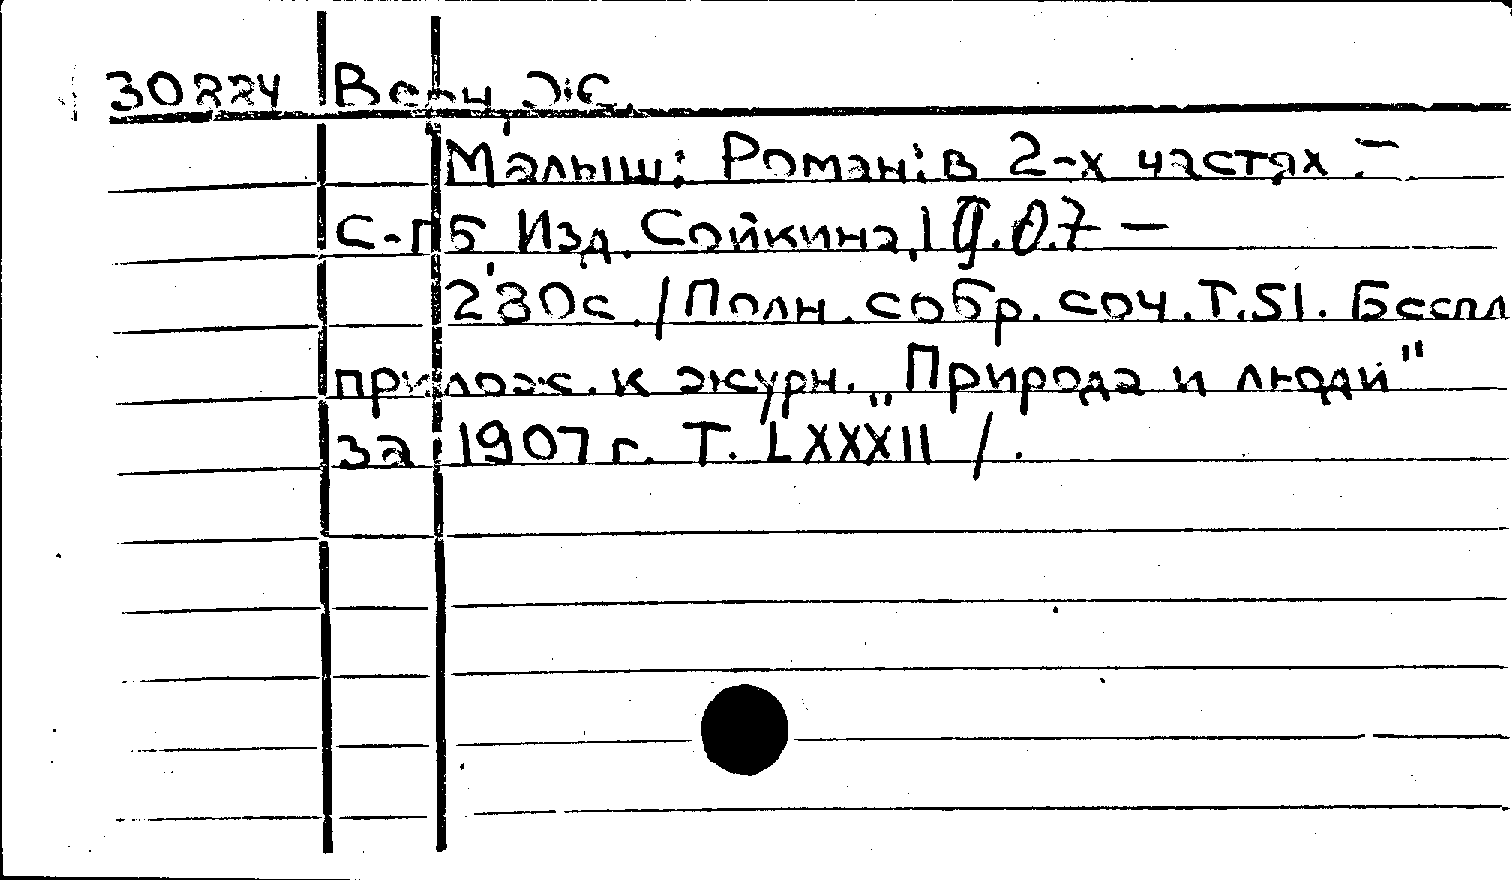 30224 Верн, Ж.
Малыш: Роман: в 2-х частях. –
С-ПБ, Изд. Сойкина, 1907 –
230с. /Полн. собр. соч. Т.51. Беспл
прилож. к журн. „Природа и люди"
за 1907 г. Т. LXXXII /.